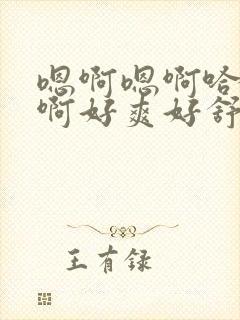 嗯啊嗯啊哈
啊好爽好舒
王有録